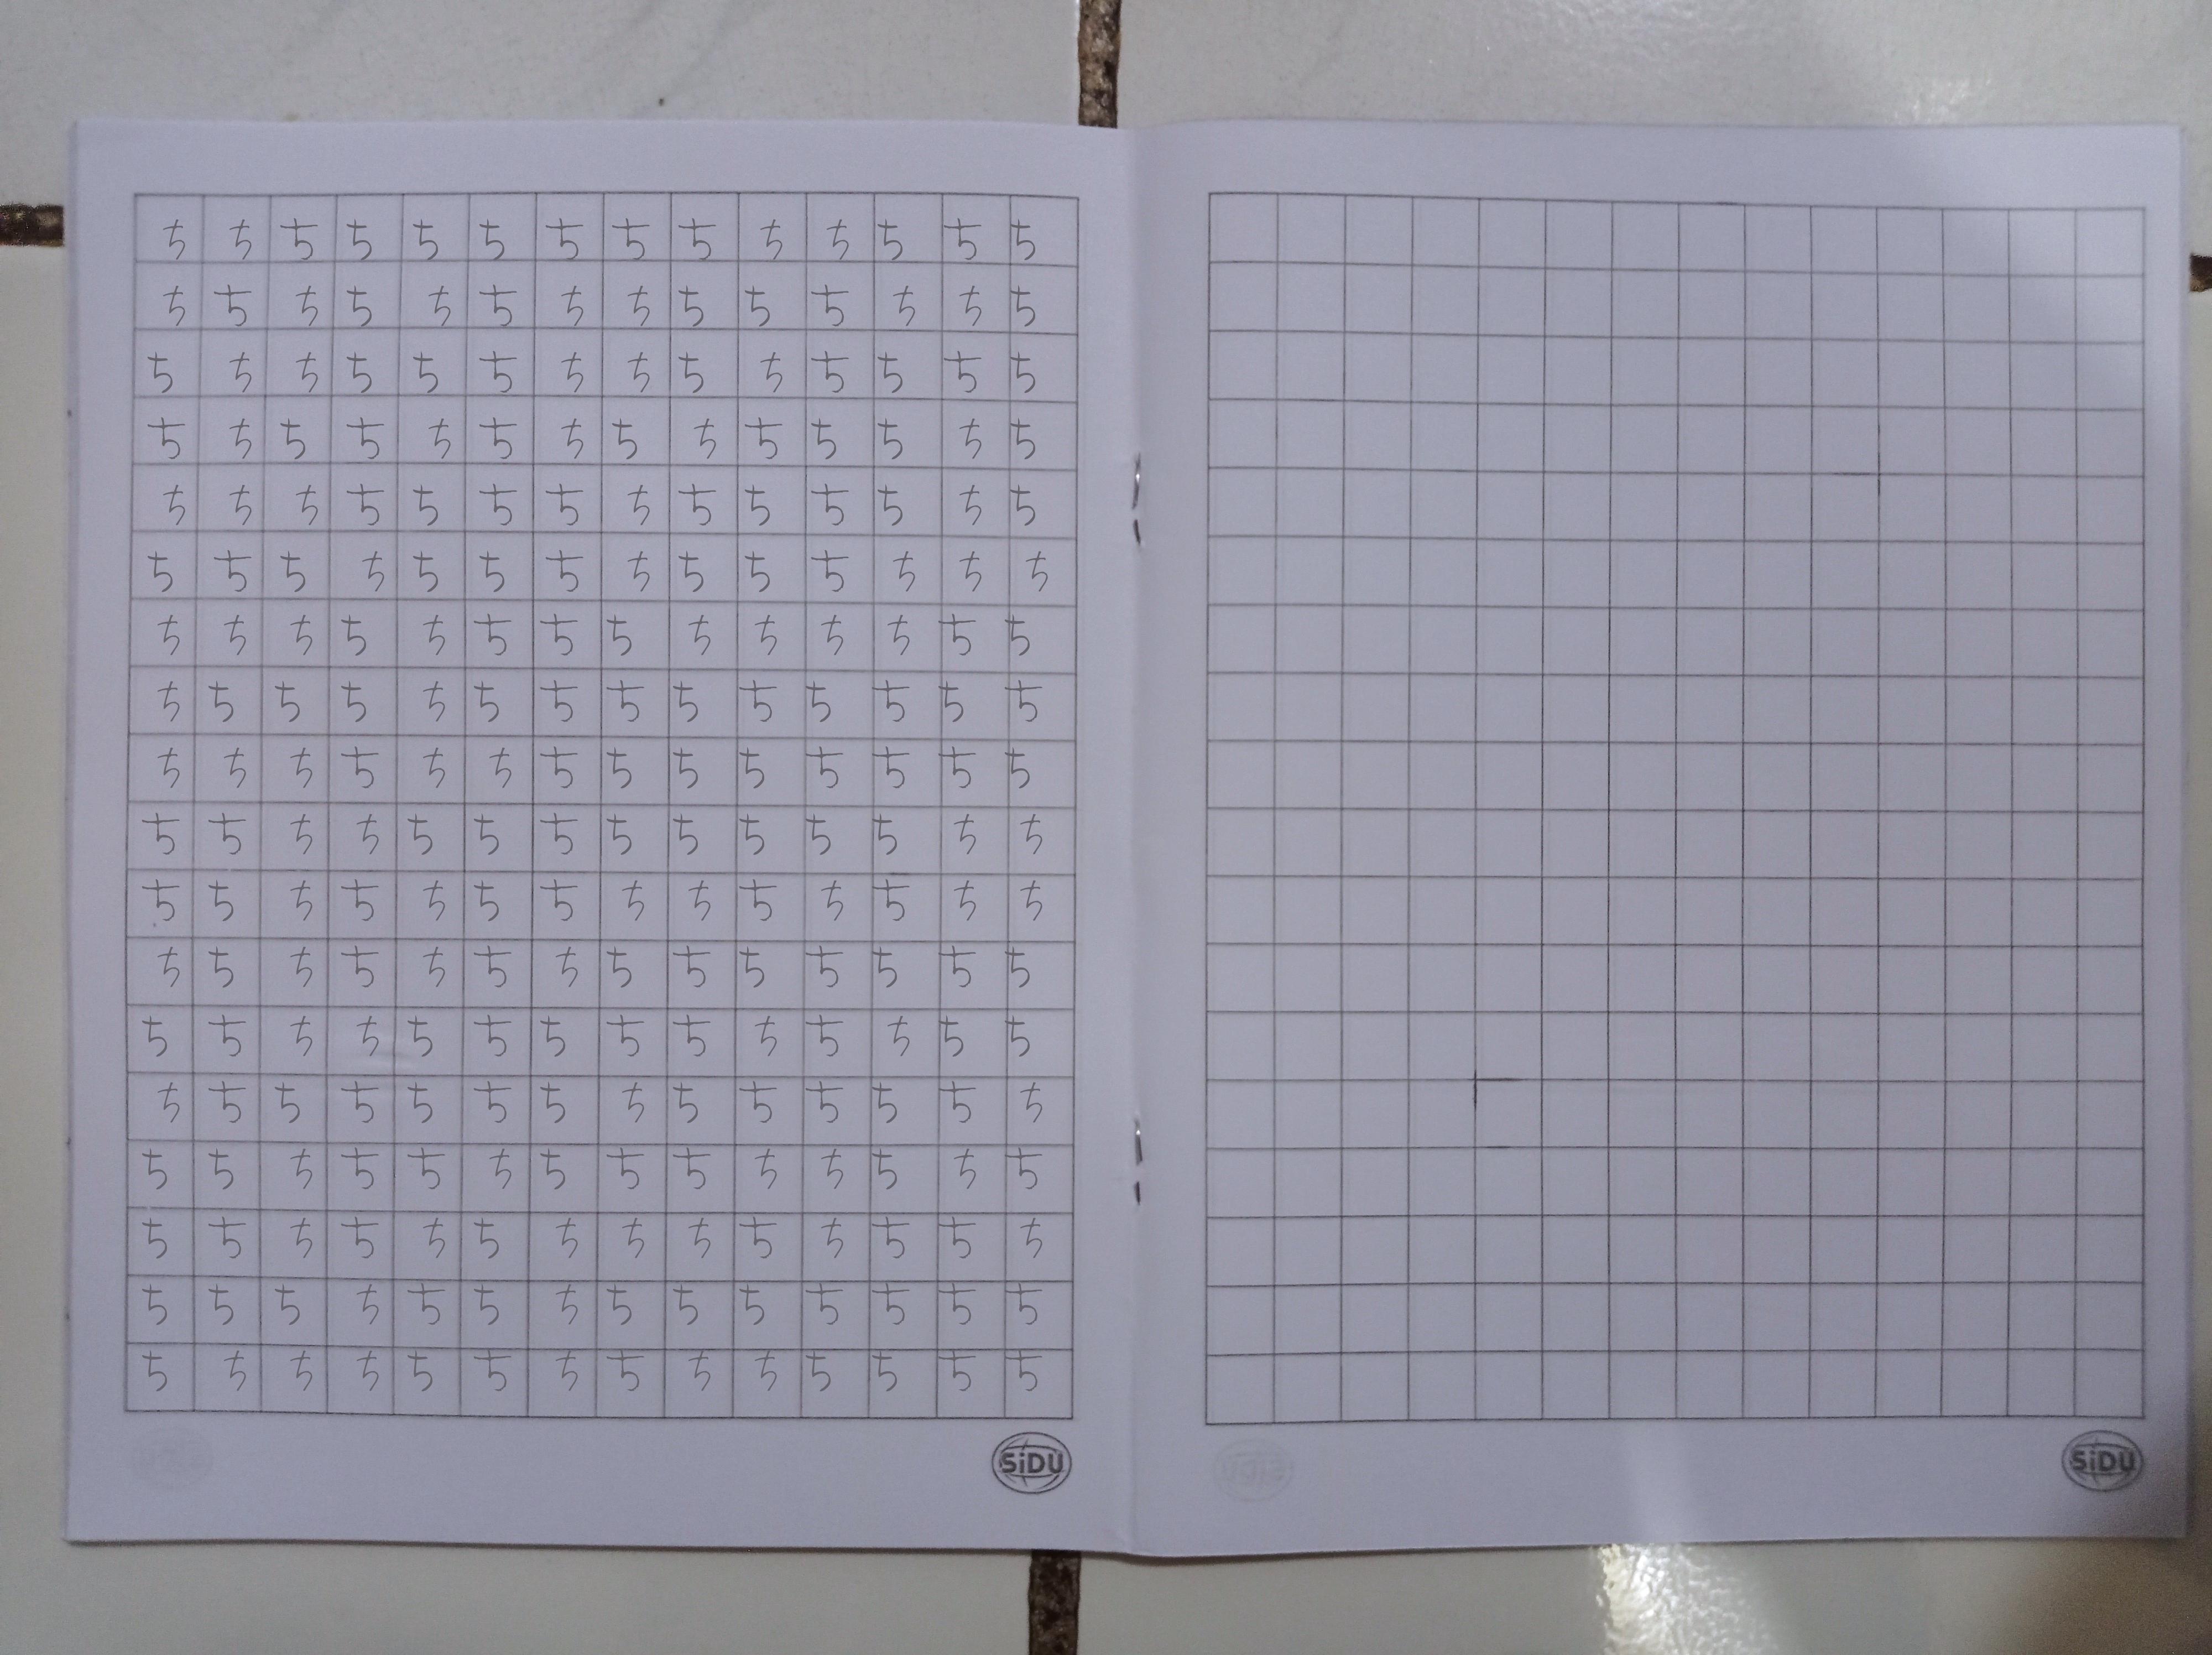 ちちちちちちちちちちちちちち
ちちちちちちちちちちちちちち
ちちちちちちちちちちちちちち
ちちちちちちちちちちちちちち
ちちちちちちちちちちちちちち
ちちちちちちちちちちちちちち
ちちちちちちちちちちちちちち
ちちちちちちちちちちちちちち
ちちちちちちちちちちちちちち
ちちちちちちちちちちちちちち
ちちちちちちちちちちちちちち
ちちちちちちちちちちちちちち
ちちちちちちちちちちちちちち
ちちちちちちちちちちちちちち
ちちちちちちちちちちちちちち
ちちちちちちちちちちちちちち
ちちちちちちちちちちちちちち
ちちちちちちちちちちちちちち
SiDU
SiDU